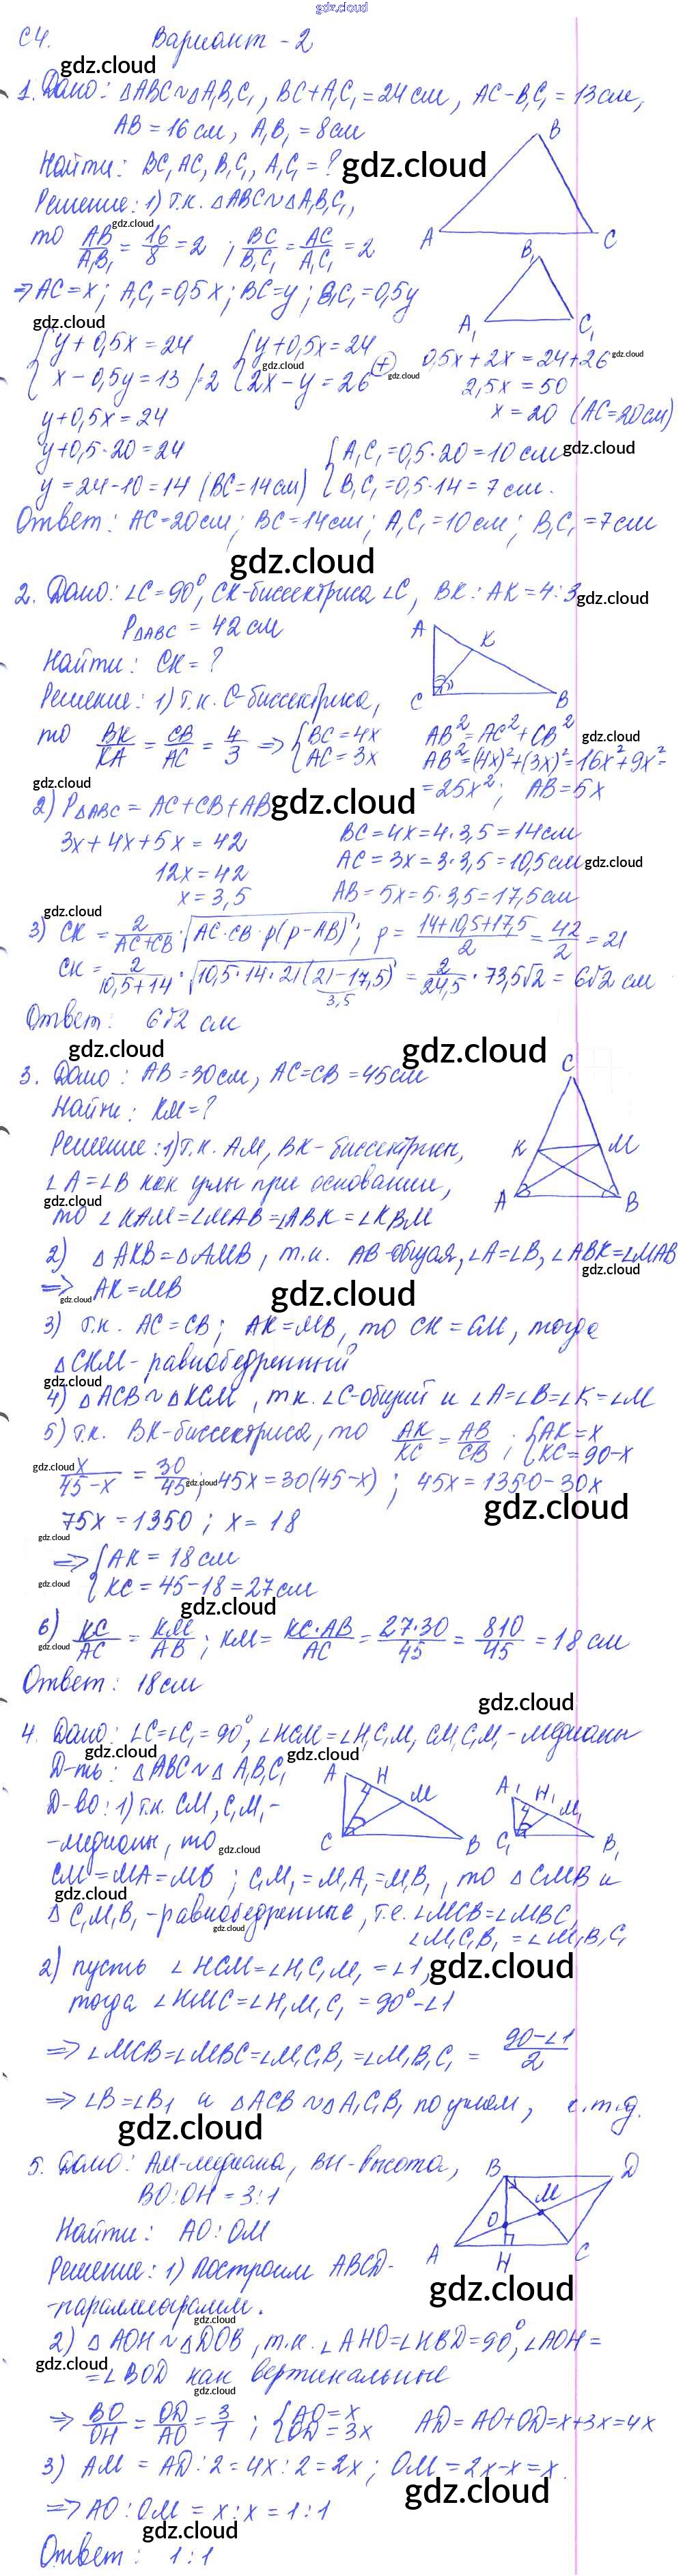 gdz.cloud
С4. Вариант - 2
gdz.cloud
1. Дано: ΔABC ~ ΔA₁B₁C₁, BC + A₁C₁ = 24 см, AC - B₁C₁ = 13 см,
AB = 16 см, A₁B₁ = 8 см
Найти: BC, AC, B₁C₁, A₁C₁ = ?
gdz.cloud
Решение: 1) Т.к. ΔABC ~ ΔA₁B₁C₁,
gdz.cloud
то AB/A₁B₁ = 16/8 = 2 ; BC/B₁C₁ = AC/A₁C₁ = 2
B
A C
B₁
A₁ C₁
=> AC = x; A₁C₁ = 0,5x; BC = y; B₁C₁ = 0,5y
gdz.cloud
{ y + 0,5x = 24 { y + 0,5x = 24 (+) 0,5x + 2x = 24 + 26
gdz.cloud
{ x - 0,5y = 13 /·2 { 2x - y = 26 2,5x = 50
gdz.cloud
gdz.cloud
y + 0,5x = 24 x = 20 (AC = 20 см)
y + 0,5·20 = 24 { A₁C₁ = 0,5·20 = 10 см
gdz.cloud
y = 24 - 10 = 14 (BC = 14 см) { B₁C₁ = 0,5·14 = 7 см.
Ответ: AC = 20 см; BC = 14 см; A₁C₁ = 10 см; B₁C₁ = 7 см
gdz.cloud
2. Дано: ∠C = 90°, CK - биссектриса ∠C, BK : AK = 4 : 3
gdz.cloud
PΔABC = 42 см
Найти: CK = ?
A
K
C B
Решение: 1) Т.к. C - биссектриса,
то BK/KA = CB/AC = 4/3 => { BC = 4x { AC = 3x AB² = AC² + CB²
gdz.cloud
AB² = (4x)² + (3x)² = 16x² + 9x² =
= 25x²; AB = 5x
gdz.cloud
2) PΔABC = AC + CB + AB
gdz.cloud
3x + 4x + 5x = 42 BC = 4x = 4·3,5 = 14 см
12x = 42 AC = 3x = 3·3,5 = 10,5 см
gdz.cloud
x = 3,5 AB = 5x = 5·3,5 = 17,5 см
gdz.cloud
3) CK = 2/(AC+CB) · √(AC·CB·p(p - AB)); p = (14+10,5+17,5)/2 = 42/2 = 21
CK = 2/(10,5+14) · √(10,5·14·21(21 - 17,5)) = 2/24,5 · 73,5√2 = 6√2 см
3,5
Ответ: 6√2 см
gdz.cloud
gdz.cloud
3. Дано: AB = 30 см, AC = CB = 45 см
Найти: KM = ?
C
K M
A B
Решение: 1) Т.к. AM, BK - биссектрисы,
∠A = ∠B как углы при основании,
gdz.cloud
то ∠KAM = ∠MAB = ∠ABK = ∠KBM
2) ΔAKB = ΔAMB, т.к. AB - общая, ∠A = ∠B, ∠ABK = ∠MAB
gdz.cloud
=> AK = MB
gdz.cloud
gdz.cloud
3) Т.к. AC = CB; AK = MB, то CK = CM, тогда
ΔCKM - равнобедренный
gdz.cloud
4) ΔACB ~ ΔKCM, т.к. ∠C - общий и ∠A = ∠B = ∠K = ∠M
5) Т.к. BK - биссектриса, то AK/KC = AB/CB ; { AK = x { KC = 90 - x
gdz.cloud
x/(45 - x) = 30/45 ; 45x = 30(45 - x) ; 45x = 1350 - 30x
gdz.cloud
gdz.cloud
75x = 1350 ; x = 18
gdz.cloud
=> { AK = 18 см
gdz.cloud
{ KC = 45 - 18 = 27 см
gdz.cloud
6) KC/AC = KM/AB ; KM = KC·AB/AC = 27·30/45 = 810/45 = 18 см
gdz.cloud
Ответ: 18 см
gdz.cloud
4. Дано: ∠C = ∠C₁ = 90°, ∠HCM = ∠H₁C₁M₁, CM, C₁M₁ - медианы
gdz.cloud
gdz.cloud
Д-ть: ΔABC ~ ΔA₁B₁C₁
A H M
C B
A₁ H₁ M₁
C₁ B₁
Д-во: 1) Т.к. CM, C₁M₁ -
- медианы, то
gdz.cloud
CM = MA = MB ; C₁M₁ = M₁A₁ = M₁B₁, то ΔCMB и
gdz.cloud
ΔC₁M₁B₁ - равнобедренные, т.е. ∠MCB = ∠MBC,
gdz.cloud
∠M₁C₁B₁ = ∠M₁B₁C₁
2) пусть ∠HCM = ∠H₁C₁M₁ = ∠1,
gdz.cloud
тогда ∠HMC = ∠H₁M₁C₁ = 90° - ∠1
=> ∠MCB = ∠MBC = ∠M₁C₁B₁ = ∠M₁B₁C₁ = (90 - ∠1)/2
=> ∠B = ∠B₁ и ΔACB ~ ΔA₁C₁B₁ по углам, ч.т.д.
gdz.cloud
5. Дано: AM - медиана, BH - высота,
BO : OH = 3 : 1
Найти: AO : OM
B D
M
O
A H C
Решение: 1) Построим ABCD -
gdz.cloud
- параллелограмм.
gdz.cloud
2) ΔAOH ~ ΔDOB, т.к. ∠AHO = ∠HBD = 90°, ∠AOH =
gdz.cloud
= ∠BOD как вертикальные
gdz.cloud
=> BO/OH = OD/AO = 3/1 ; { AO = x { OD = 3x AD = AO + OD = x + 3x = 4x
3) AM = AD : 2 = 4x : 2 = 2x ; OM = 2x - x = x.
gdz.cloud
=> AO : OM = x : x = 1 : 1
gdz.cloud
Ответ: 1 : 1